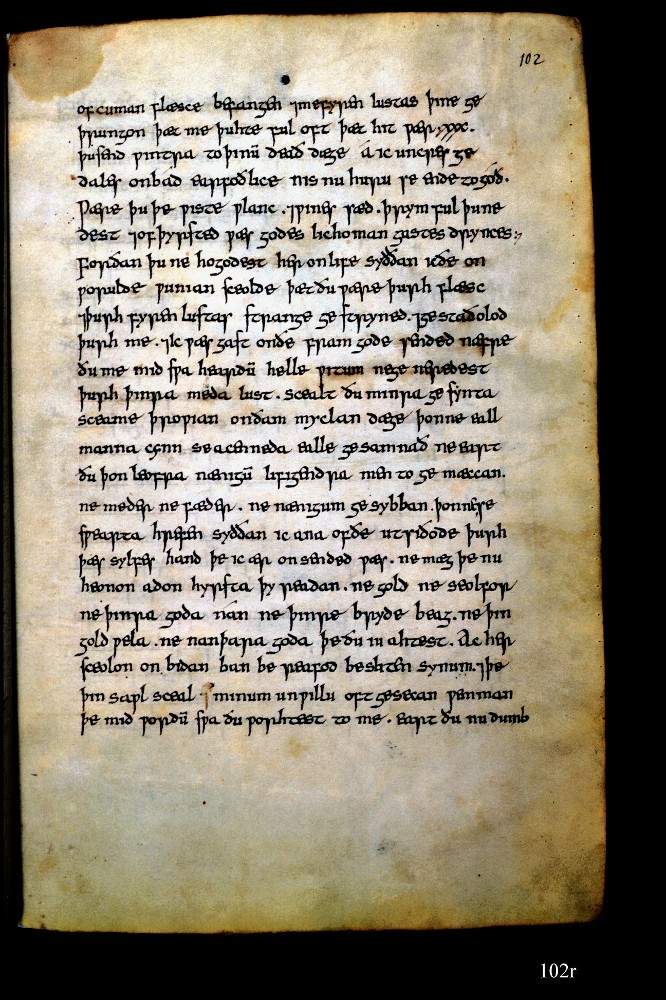 102
of cuman flæsce befangen ⁊me fyren lustas þine ge
þrungon þæt me þuhte ful oft þæt hit ƿær .xxx.
þusend ƿintra to þinū deað dæge á ic uncres ge
dales onbad earfoðlice nis nu huru se ende to gód.
Ƿære þu þe ƿiste ƿlanc .⁊ƿines sæd .þrym ful þune
dest ⁊of þyrsted ƿæs godes lichoman gastes drynces:,
forðan þu ne hogodest her on life syððan ic ðe on
ƿorulde ƿunian sceolde þæt ðu ƿære þurh flæsc
⁊þurh fyren lustas strange ge stryned .⁊ge staðolod
þurh me .⁊ic ƿæs gast on ðe fram gode sended næfre
ðu me mid sƿa heardū helle ƿitum ne ge neredest
þurh þinra neoda lust . scealt ðu minra ge synta
sceame þroƿian on ðam myclan dæge þonne eall
manna cynn se acænneda ealle ge samnað ne eart
ðu þon leofra nænigū lifigendra men to ge mæccan.
ne meder ne fæder . ne nænigum ge sybban .þonne se
sƿearta hrefen syððan ic ana of ðe ut siðode þurh
þæs sylfes hand þe ic ær on sended ƿæs . ne mæg þe nu
heonon adon hyrsta þy readan . ne gold ne seolfor
ne þinra goda nán ne þinre bryde beag . ne þin
gold ƿela . ne nan þara goda þe ðu iu ahtest . Ac her
sceolon on bidan ban be reafod besliten synum .⁊þe
þin saƿl sceal minum unƿillu oft gesecan ƿemman
þe mid ƿordū sƿa ðu ƿorhtest to me . eart ðu nu dumb
102r